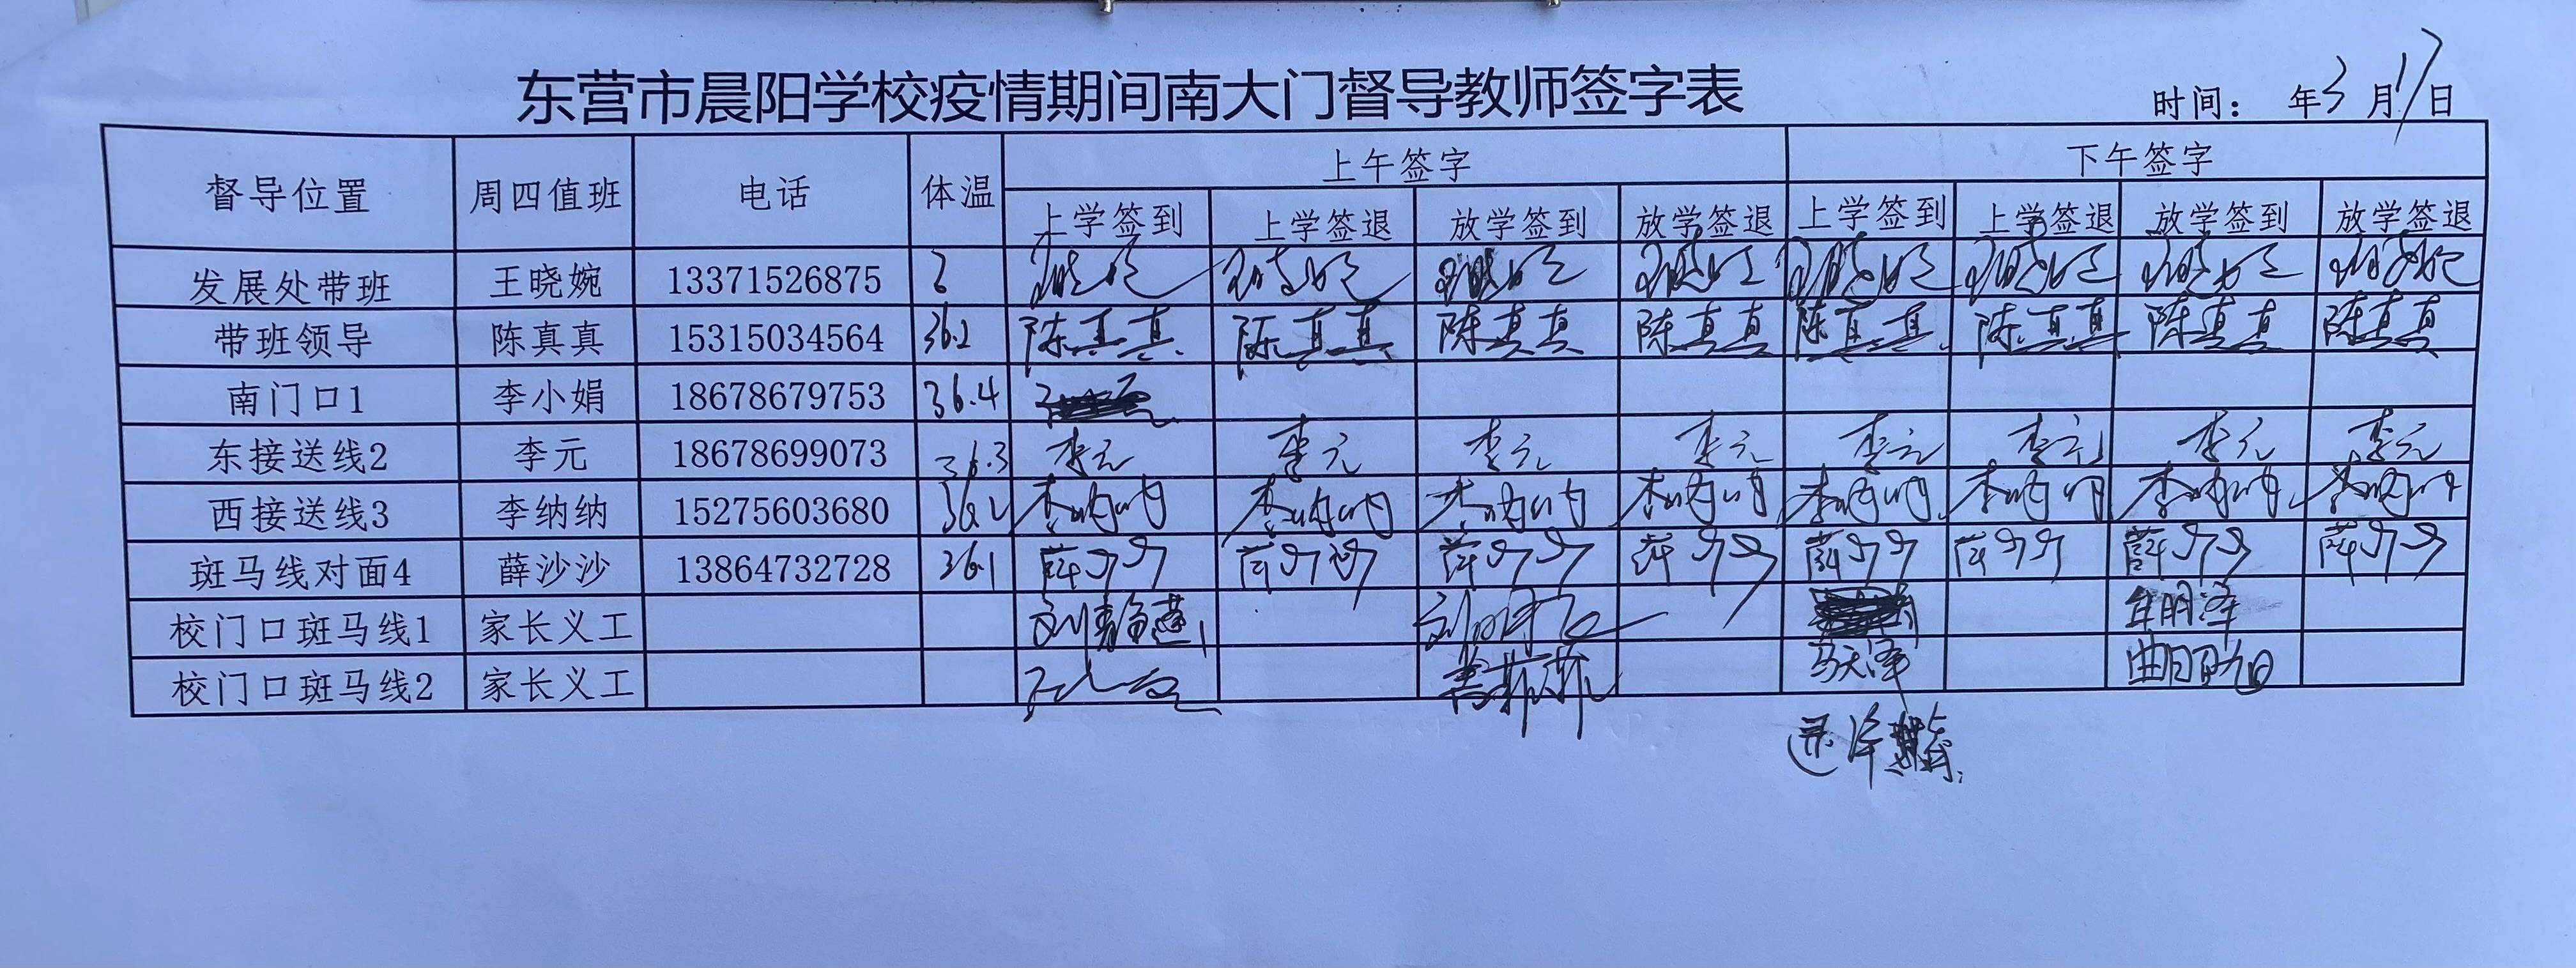 东营市晨阳学校疫情期间南大门督导教师签字表
时间： 年3月17日
督导位置 周四值班 电话 体温 上午签字 下午签字
上学签到 上学签退 放学签到 放学签退 上学签到 上学签退 放学签到 放学签退
发展处带班 王晓婉 13371526875
带班领导 陈真真 15315034564 36.2 陈真真 陈真真 陈真真 陈真真 陈真真 陈真真 陈真真 陈真真
南门口1 李小娟 18678679753 36.4
东接送线2 李元 18678699073 36.3 李元 李元 李元 李元 李元 李元 李元 李元
西接送线3 李纳纳 15275603680 36.2 李纳纳 李纳纳 李纳纳 李纳纳 李纳纳 李纳纳 李纳纳 李纳纳
斑马线对面4 薛沙沙 13864732728 36.1 薛沙沙 薛沙沙 薛沙沙 薛沙沙 薛沙沙 薛沙沙 薛沙沙 薛沙沙
校门口斑马线1 家长义工
校门口斑马线2 家长义工 马天泽